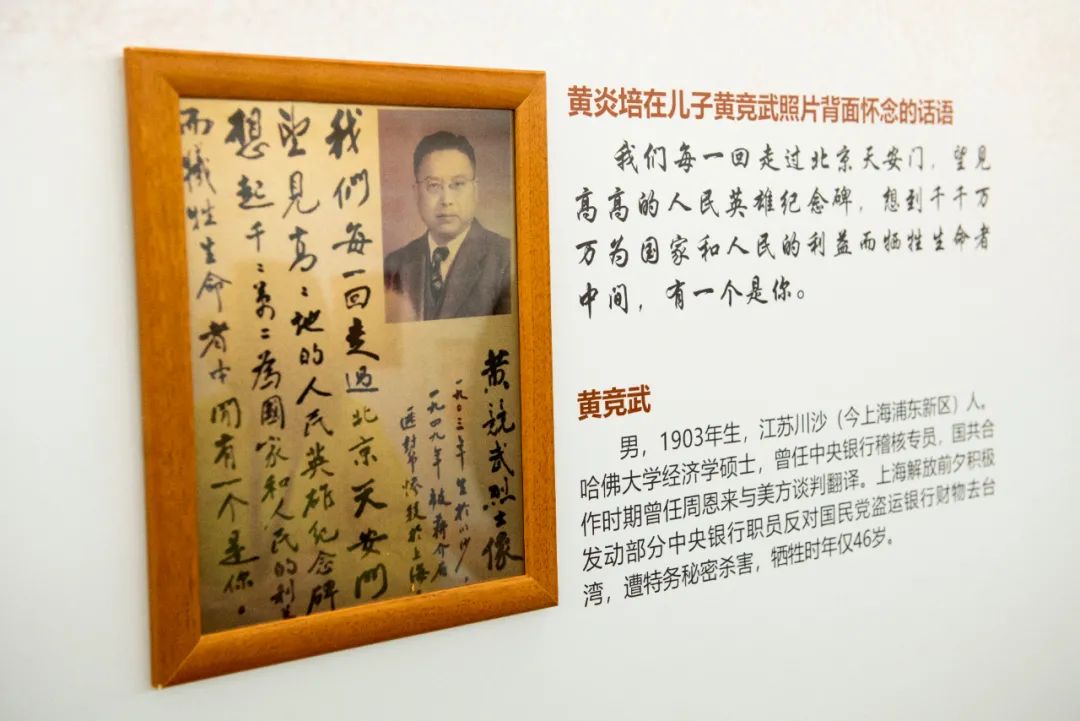 我們每一回走過北京天安門
望見高〻地的人民英雄紀念碑
想起千〻萬〻為國家和人民的利益
而犧牲生命者中間有一个是你。
黃競武烈士像
一九〇三年生於川沙，
一九四九年被蔣介石
匪幫慘殺於上海。
黄炎培在儿子黄竞武照片背面怀念的话语
我们每一回走过北京天安门，望见
高高的人民英雄纪念碑，想到千千万
万为国家和人民的利益而牺牲生命者
中间，有一个是你。
黄竞武
男，1903年生，江苏川沙（今上海浦东新区）人。
哈佛大学经济学硕士，曾任中央银行稽核专员，国共合
作时期曾任周恩来与美方谈判翻译。上海解放前夕积极
发动部分中央银行职员反对国民党盗运银行财物去台
湾，遭特务秘密杀害，牺牲时年仅46岁。